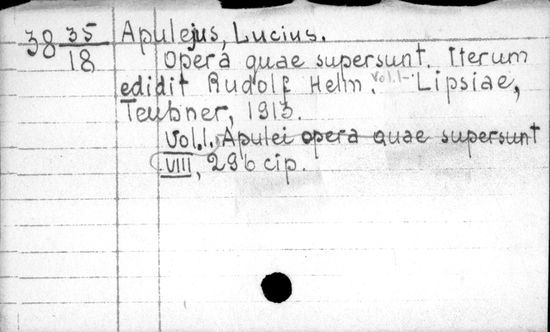 38 35/18 Apulejus, Lucius.
Opera quae supersunt. Iterum
edidit Rudolf Helm. Vol.1- Lipsiae,
Teubner, 1913.
Vol.1. Apulei opera quae supersunt
VIII, 296 cip.